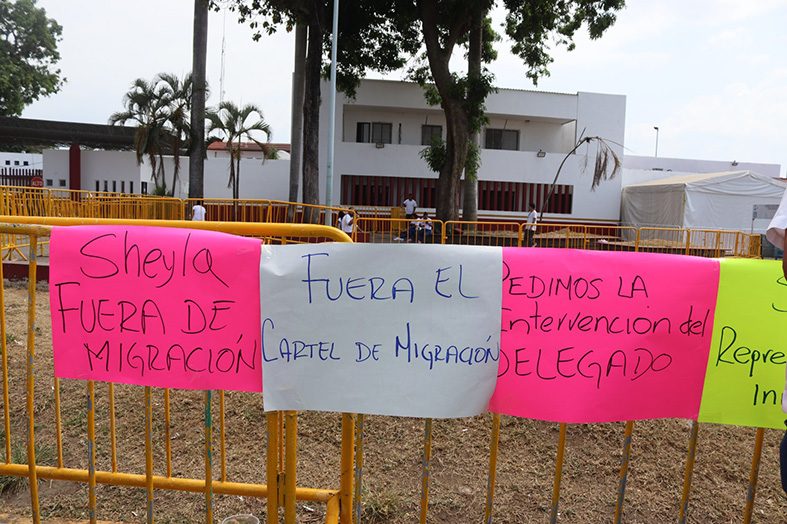 Sheyla
FUERA DE
MIGRACIÓN
FUERA EL
CARTEL DE MIGRACIÓN
PEDIMOS LA
Intervención del
DELEGADO
S
Repre
In
ALTO